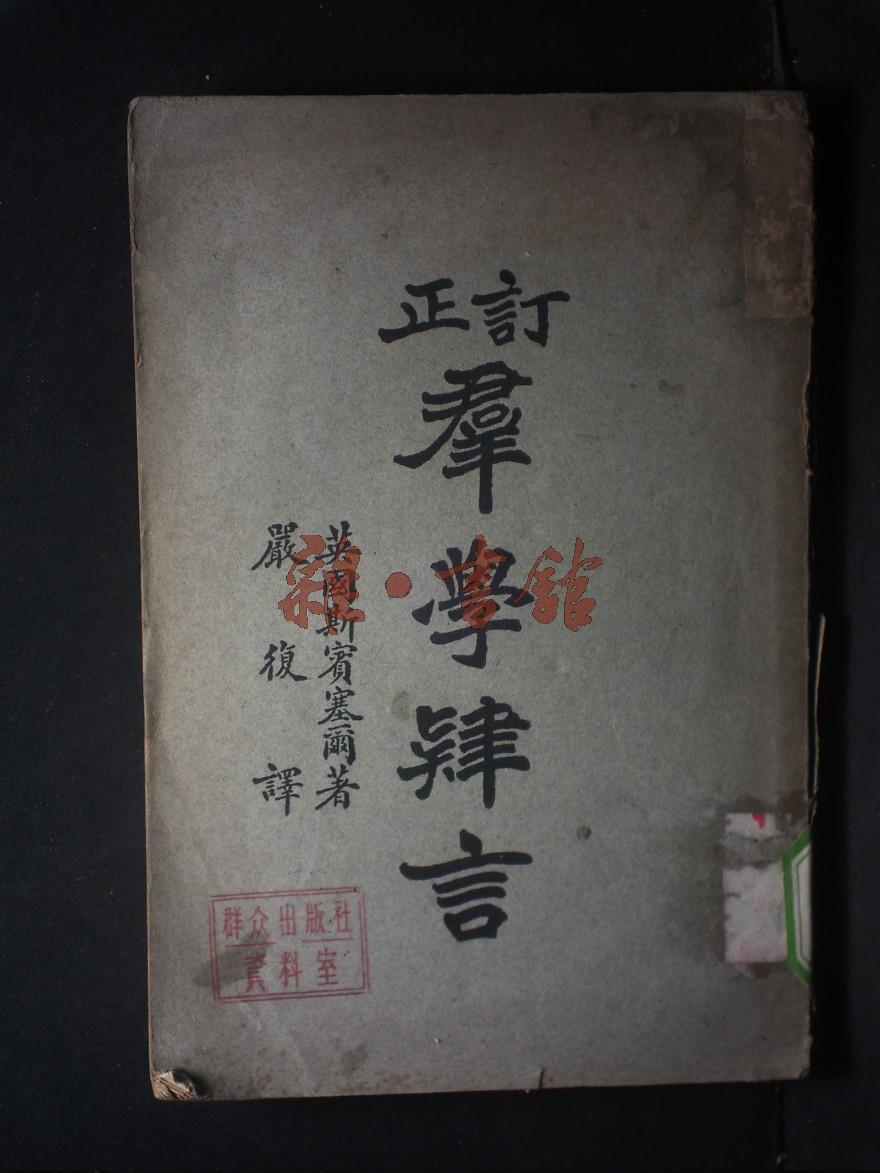 訂正
羣學肄言
英國斯賓塞爾著
嚴復譯
雜·書舘
群众出版社
資料室